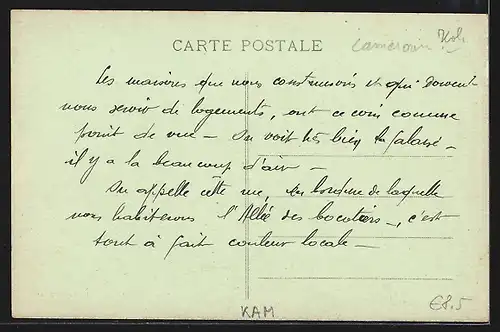 Cameroun
CARTE POSTALE
Les maisons que nous construisons et qui doivent
nous servir de logements, ont ce coin comme
point de vue - On voit très bien la falaise -
il y a là beaucoup d'air -
On appelle cette rue, en bordure de laquelle
nous habiterons l'Allée des Cocotiers -, c'est
tout à fait couleur locale -
KAM
€8.5